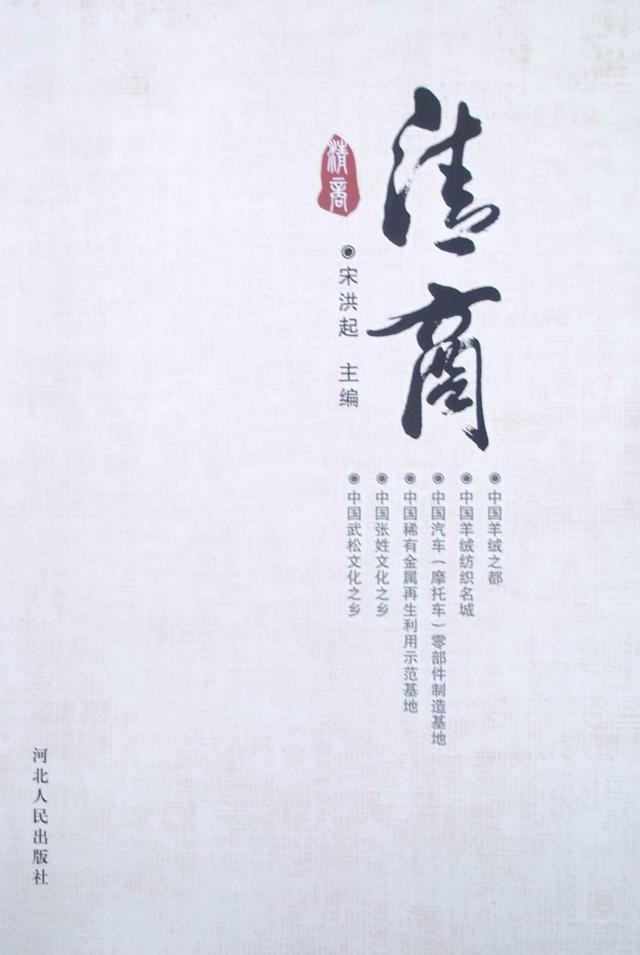 清商
清商
宋洪起 主编
中国羊绒之都
中国羊绒纺织名城
中国汽车（摩托车）零部件制造基地
中国稀有金属再生利用示范基地
中国张姓文化之乡
中国武松文化之乡
河北人民出版社